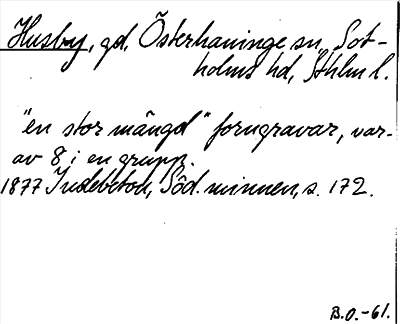 Husby, gd, Österhaninge sn, Sot-
holms hd, Sthlm l.
"en stor mängd" forngravar, var-
av 8 i en grupp.
1877 Indebetou, Söd. minnen, s. 172.
B.O.-61.